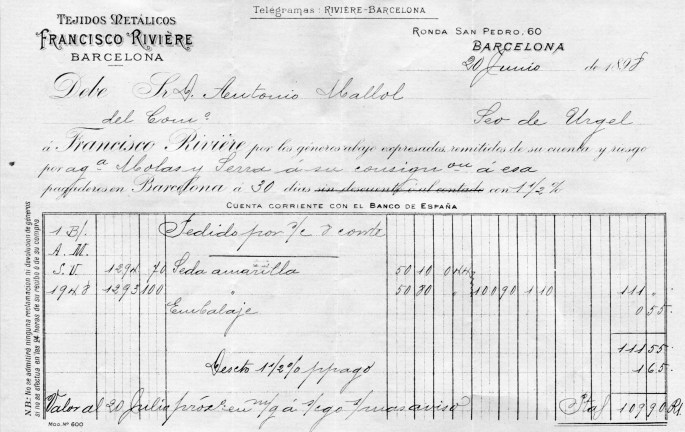 Telegramas: RIVIÈRE-BARCELONA
TEJIDOS METÁLICOS
FRANCISCO RIVIÈRE
BARCELONA
RONDA SAN PEDRO, 60
BARCELONA
20 Junio de 1898
Debe Sr. D. Antonio Mallol
del Comº Seo de Urgel
á Francisco Rivière por los géneros abajo expresados remitidos de su cuenta y riesgo
por agª Molas y Serra á su consignon á esa
pagaderos en Barcelona á 30 dias sin descuento ó al contado con 1 1/2 %
CUENTA CORRIENTE CON EL BANCO DE ESPAÑA
1 B/. Pedido por
A. M.
S. V. 1294 70 Seda amarilla 50 10
1948 1293 100 " 50 80 " 100 90 1 10 111 "
Embalaje 0 55
111 55
Descto 1 1/2 % p pago 1 65
Valor al 20 Julio próxº en m/g á s/cgo s/mas aviso Ptas 109 90
N.B: No se admitirá ninguna reclamacion ni devolucion de géneros
si no se efectua en las 24 horas de su recibo ó de su compra
MOD. Nº 600